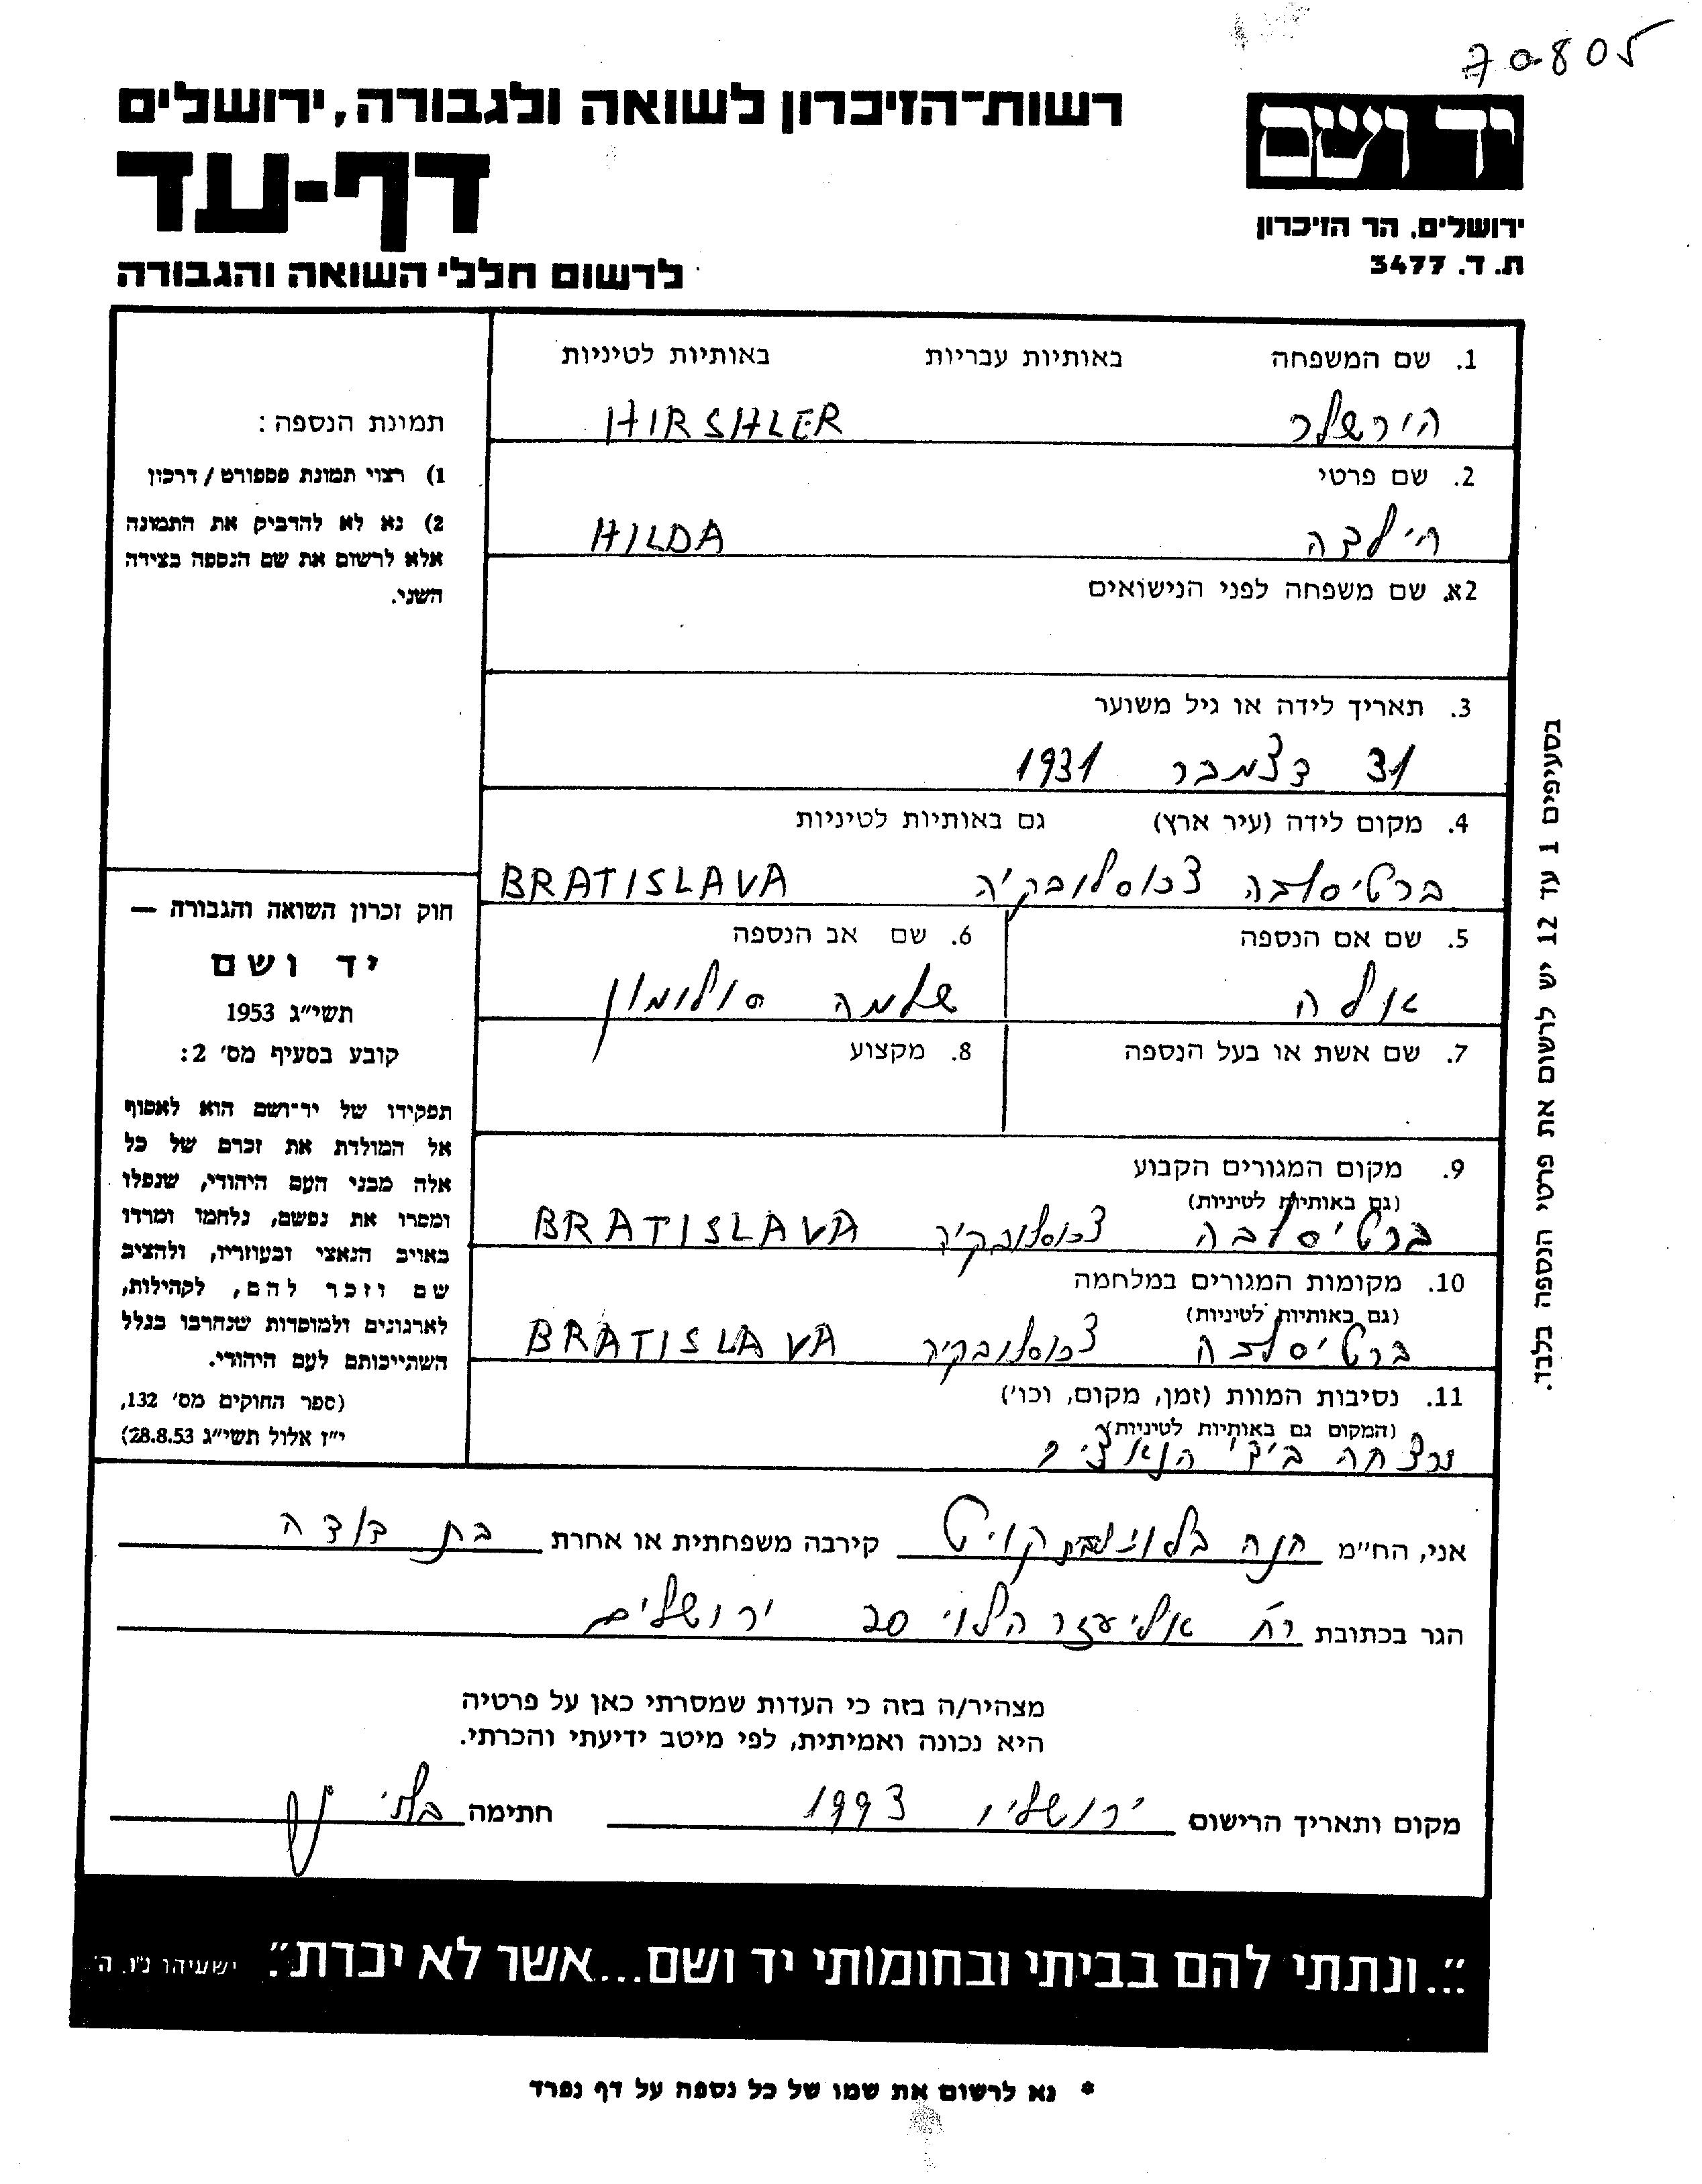 70805
יד ושם
ירושלים, הר הזיכרון
ת. ד. 3477
רשות־הזיכרון לשואה ולגבורה, ירושלים
דף-עד
לרשום חללי השואה והגבורה
1. שם המשפחה באותיות עבריות באותיות לטיניות
הירשלר HIRSHLER
2. שם פרטי
הילדה HILDA
2א. שם משפחה לפני הנישואים
3. תאריך לידה או גיל משוער
31 דצמבר 1931
4. מקום לידה (עיר ארץ) גם באותיות לטיניות
ברטיסלבה צכוסלובקיה BRATISLAVA
5. שם אם הנספה 6. שם אב הנספה
אלה שלמה סולומון
7. שם אשת או בעל הנספה 8. מקצוע
9. מקום המגורים הקבוע
(גם באותיות לטיניות)
ברטיסלבה צכוסלובקיה BRATISLAVA
10. מקומות המגורים במלחמה
(גם באותיות לטיניות)
ברטיסלבה צכוסלובקיה BRATISLAVA
11. נסיבות המוות (זמן, מקום, וכו')
(המקום גם באותיות לטיניות)
נרצחה בידי הנאצים
תמונת הנספה:
1) רצוי תמונת פספורט / דרכון
2) נא לא להדביק את התמונה
אלא לרשום את שם הנספה בצידה
השני.
חוק זכרון השואה והגבורה —
יד ושם
תשי"ג 1953
קובע בסעיף מס' 2:
תפקידו של יד־ושם הוא לאסוף
אל המולדת את זכרם של כל
אלה מבני העם היהודי, שנפלו
ומסרו את נפשם, נלחמו ומרדו
באויב הנאצי ובעוזריו, ולהציב
שם וזכר להם, לקהילות,
לארגונים ולמוסדות שנחרבו בגלל
השתייכותם לעם היהודי.
(ספר החוקים מס' 132,
י"ז אלול תשי"ג 28.8.53)
בסעיפים 1 עד 12 יש לרשום את פרטי הנספה בלבד.
אני, הח"מ חנה קירבה משפחתית או אחרת בת דודה
הגר בכתובת רח אליעזר הלוי 20 ירושלים
מצהיר/ה בזה כי העדות שמסרתי כאן על פרטיה
היא נכונה ואמיתית, לפי מיטב ידיעתי והכרתי.
מקום ותאריך הרישום ירושלים 1993 חתימה
"...ונתתי להם בביתי ובחומותי יד ושם...אשר לא יכרת". ישעיהו נ"ו, ה'
* נא לרשום את שמו של כל נספה על דף נפרד